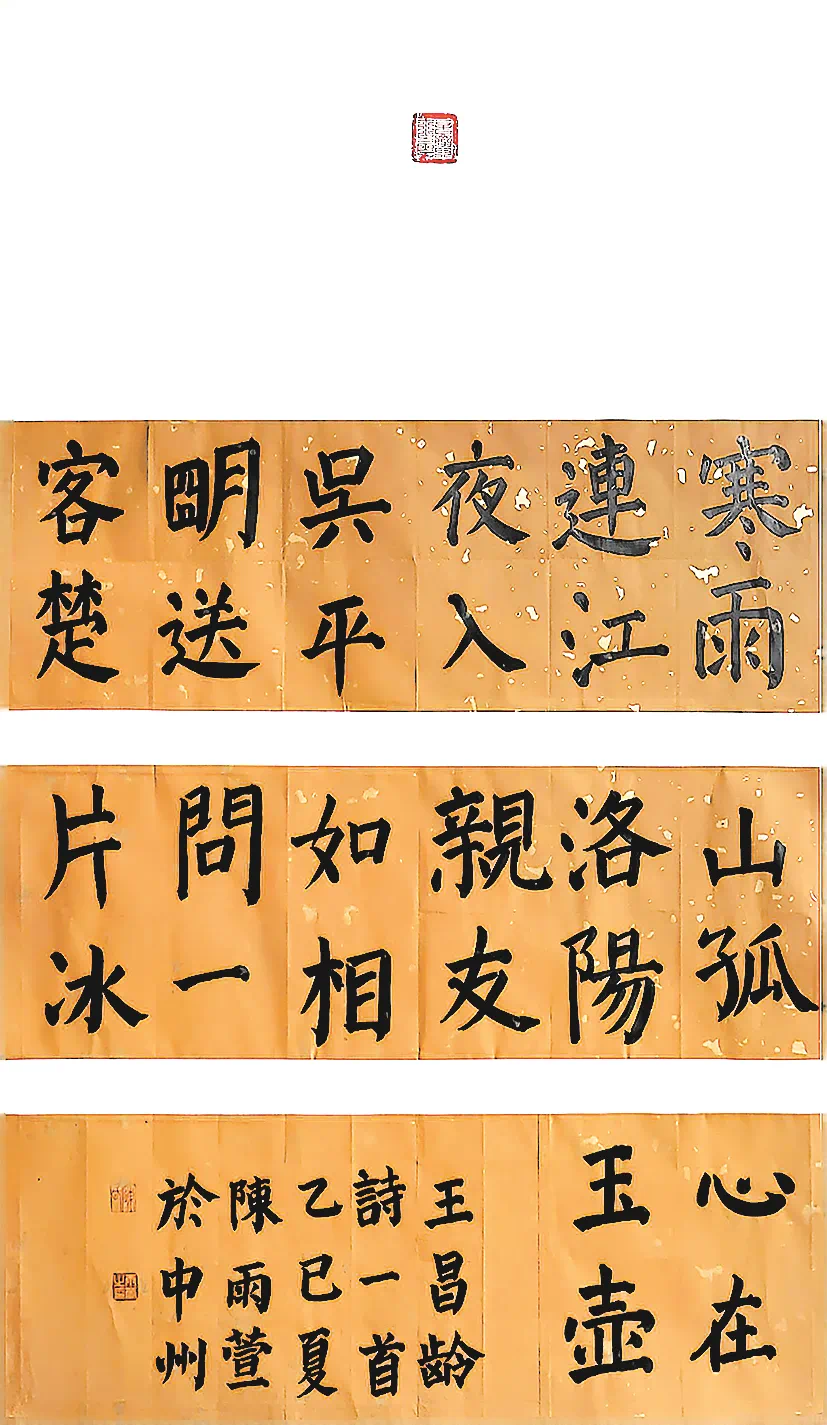 寒雨
連江
夜入
吳平
朙送
客楚
山孤
洛陽
親友
如相
問一
片冰
心在
玉壺
王昌齡
詩一首
乙巳夏
陳雨萱
於中州